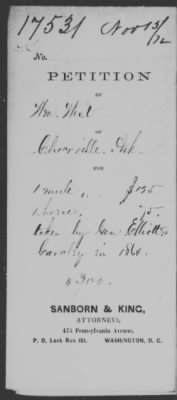 17531 Nov 13/72
No.
PETITION
OF
Wm. West
OF
Ark.
FOR
1 mule $125
1 horse, 175.
taken by Gen. Elliott's
Cavalry in 1864.
$300.
SANBORN & KING,
ATTORNEYS,
475 Pennsylvania Avenue,
P. O. Lock Box 60. WASHINGTON, D. C.